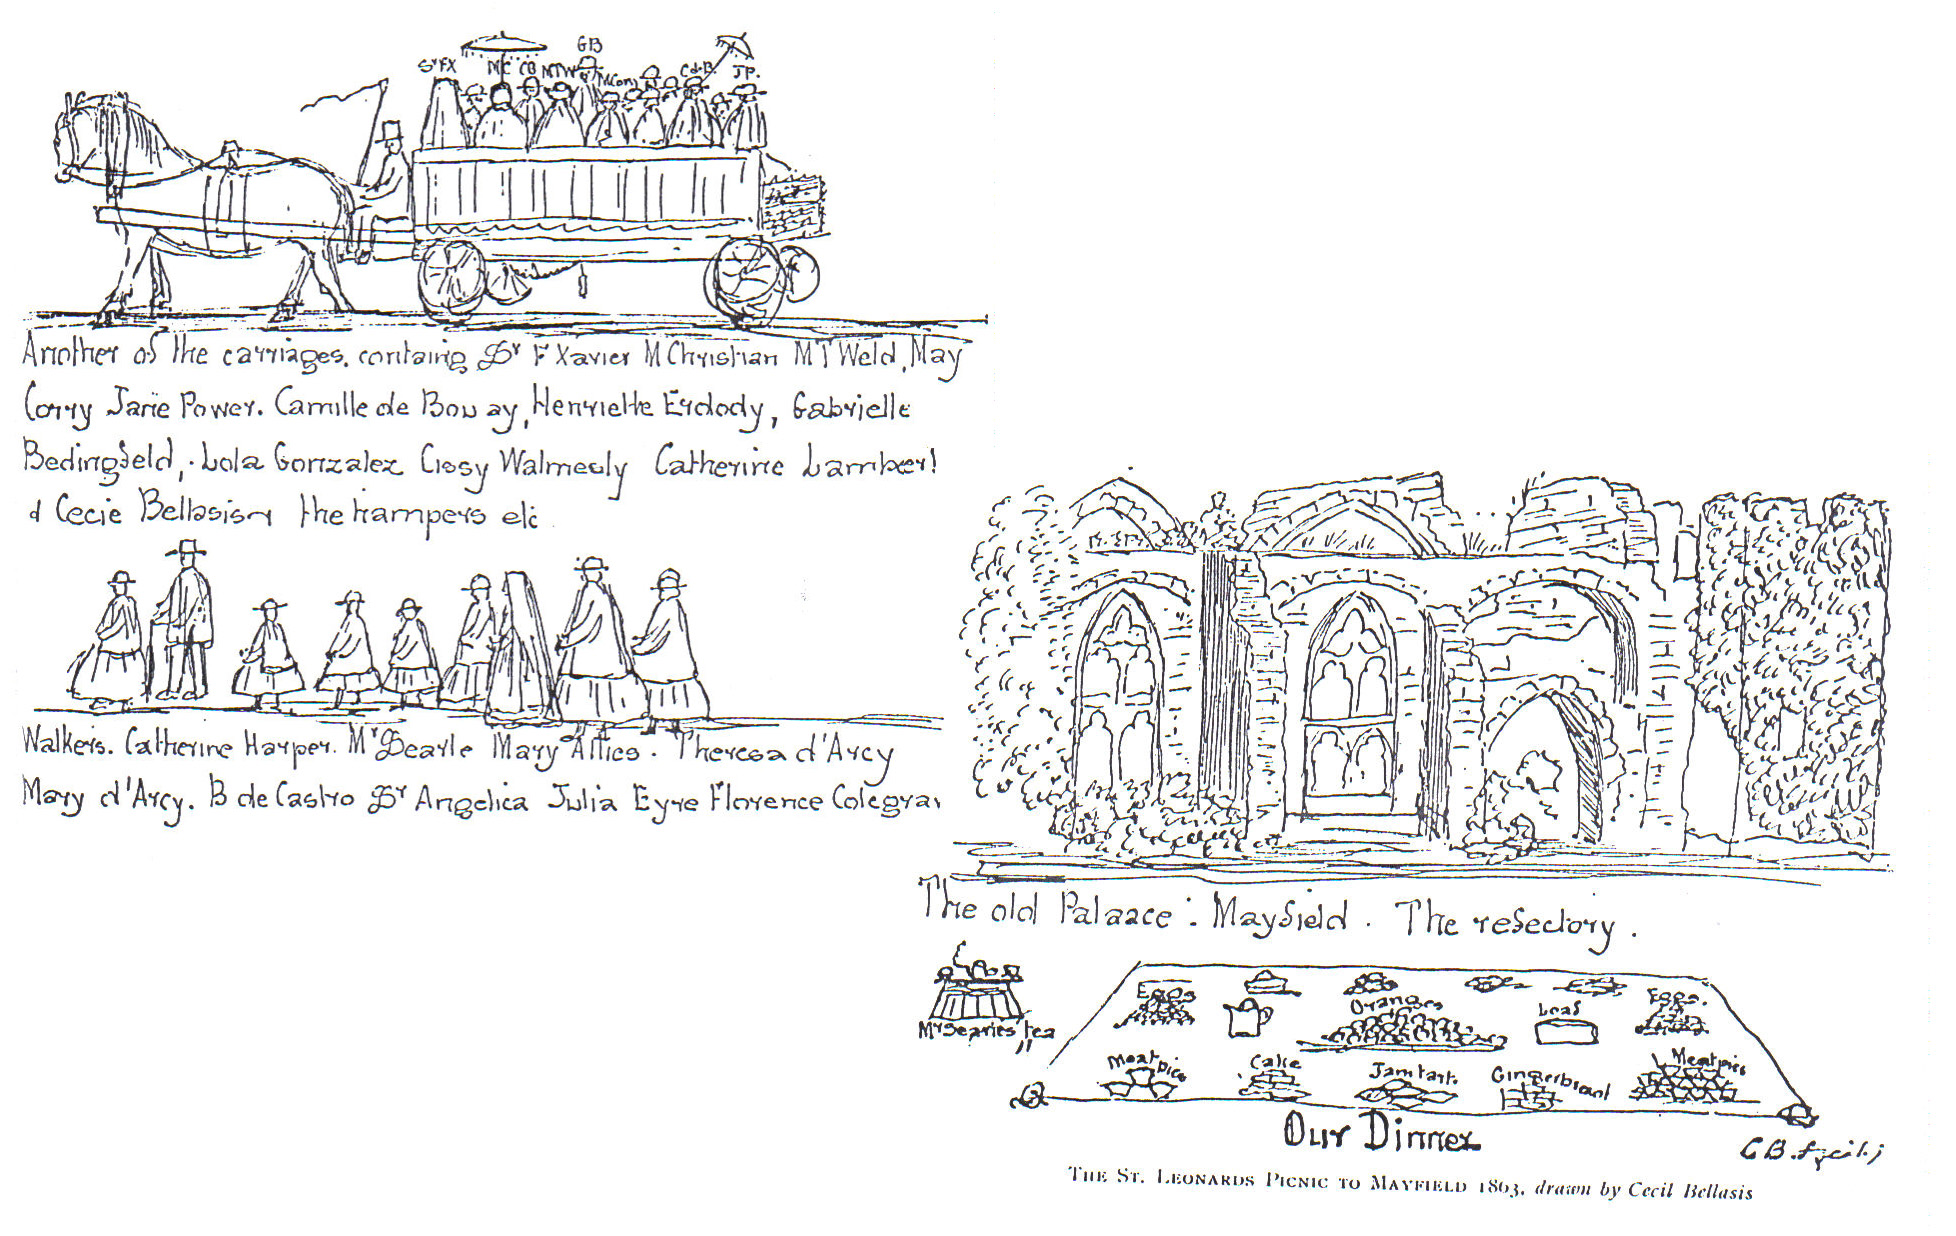 Sr FX MC CB MTW GB M Cory C de B. JP.
Another of the carriages. containig Sr F Xavier M Christian M T Weld, May
Corry Jane Power. Camille de Bouay, Henriette Erdody, Gabrielle
Bedingfeld, . Lola Gonzalez Cissy Walmesly Catherine Lambert
& Cecie Bellasis the hampers etc
Walkers. Catherine Harper. Mr Searle Mary Atties. Theresa d'Arcy
Mary d'Arcy. B de Castro Sr Angelica Julia Eyre Florence Colegrav
The old Palaace : Mayfield . The refectory .
Mr Searles' tea
Eggs Oranges Loaf Eggs.
Meat pies Cake Jam tart. Gingerbread Meat pies
Our Dinner
CB.
The St. Leonards Picnic to Mayfield 1863, drawn by Cecil Bellasis